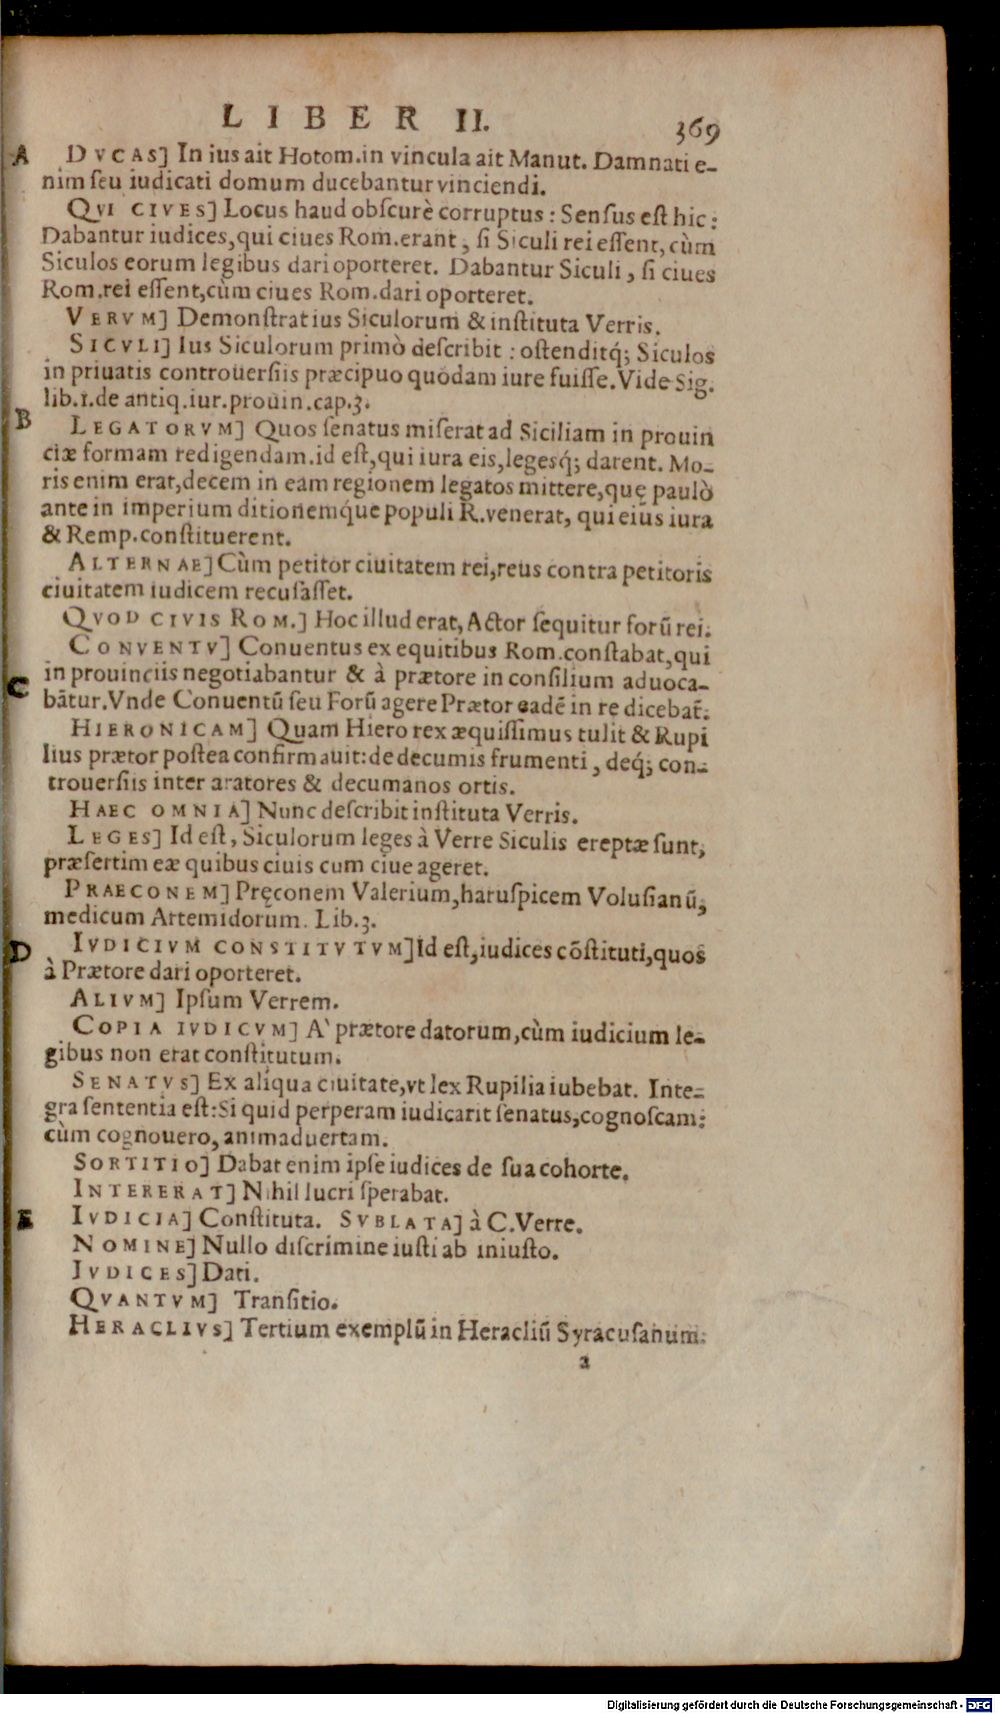 LIBER II. 369
A DVCAS] In ius ait Hotom.in vincula ait Manut. Damnati e-
nim ſeu iudicati domum ducebantur vinciendi.
QVI CIVES] Locus haud obſcurè corruptus : Senſus eſt hic:
Dabantur iudices,qui ciues Rom.erant, ſi Siculi rei eſſent, cùm
Siculos eorum legibus dari oporteret. Dabantur Siculi, ſi ciues
Rom.rei eſſent,cùm ciues Rom.dari oporteret.
VERVM] Demonſtrat ius Siculorum & inſtituta Verris.
SICVLI] Ius Siculorum primò deſcribit : oſtenditq́; Siculos
in priuatis controuerſiis præcipuo quodam iure fuiſſe. Vide Sig.
lib.1.de antiq.iur.prouin.cap.3.
B LEGATORVM] Quos ſenatus miſerat ad Siciliam in prouin
ciæ formam redigendam.id eſt,qui iura eis,legesq́; darent. Mo-
ris enim erat,decem in eam regionem legatos mittere,quę paulò
ante in imperium ditionemq́ue populi R.venerat, qui eius iura
& Remp.conſtituerent.
ALTERNAE] Cùm petitor ciuitatem rei,reus contra petitoris
ciuitatem iudicem recuſaſſet.
QVOD CIVIS ROM.] Hoc illud erat, Actor ſequitur forũ rei.
CONVENTV] Conuentus ex equitibus Rom.conſtabat,qui
C in prouinciis negotiabantur & à prætore in conſilium aduoca-
bãtur.Vnde Conuentũ ſeu Forũ agere Prætor eadẽ in re dicebat̃.
HIERONICAM] Quam Hiero rex æquiſſimus tulit & Rupi
lius prætor poſtea confirmauit: de decumis frumenti, deq́; con-
trouerſiis inter aratores & decumanos ortis.
HAEC OMNIA] Nunc deſcribit inſtituta Verris.
LEGES] Id eſt, Siculorum leges à Verre Siculis ereptæ ſunt,
præſertim eæ quibus ciuis cum ciue ageret.
PRAECONEM] Pręconem Valerium,haruſpicem Voluſianũ,
medicum Artemidorum. Lib.3.
D IVDICIVM CONSTITVTVM] Id eſt,iudices cõſtituti,quos
à Prætore dari oporteret.
ALIVM] Ipſum Verrem.
COPIA IVDICVM] A` prætore datorum,cùm iudicium le-
gibus non erat conſtitutum.
SENATVS] Ex aliqua ciuitate,vt lex Rupilia iubebat. Inte-
gra ſententia eſt:Si quid perperam iudicarit ſenatus,cognoſcam:
cùm cognouero, animaduertam.
SORTITIO] Dabat enim ipſe iudices de ſua cohorte.
INTERERAT] Nihil lucri ſperabat.
E IVDICIA] Conſtituta. SVBLATA] à C.Verre.
NOMINE] Nullo diſcrimine iuſti ab iniuſto.
IVDICES] Dati.
QVANTVM] Tranſitio.
HERACLIVS] Tertium exemplũ in Heracliũ Syracuſanum.
a
Digitalisierung gefördert durch die Deutsche Forschungsgemeinschaft - DFG